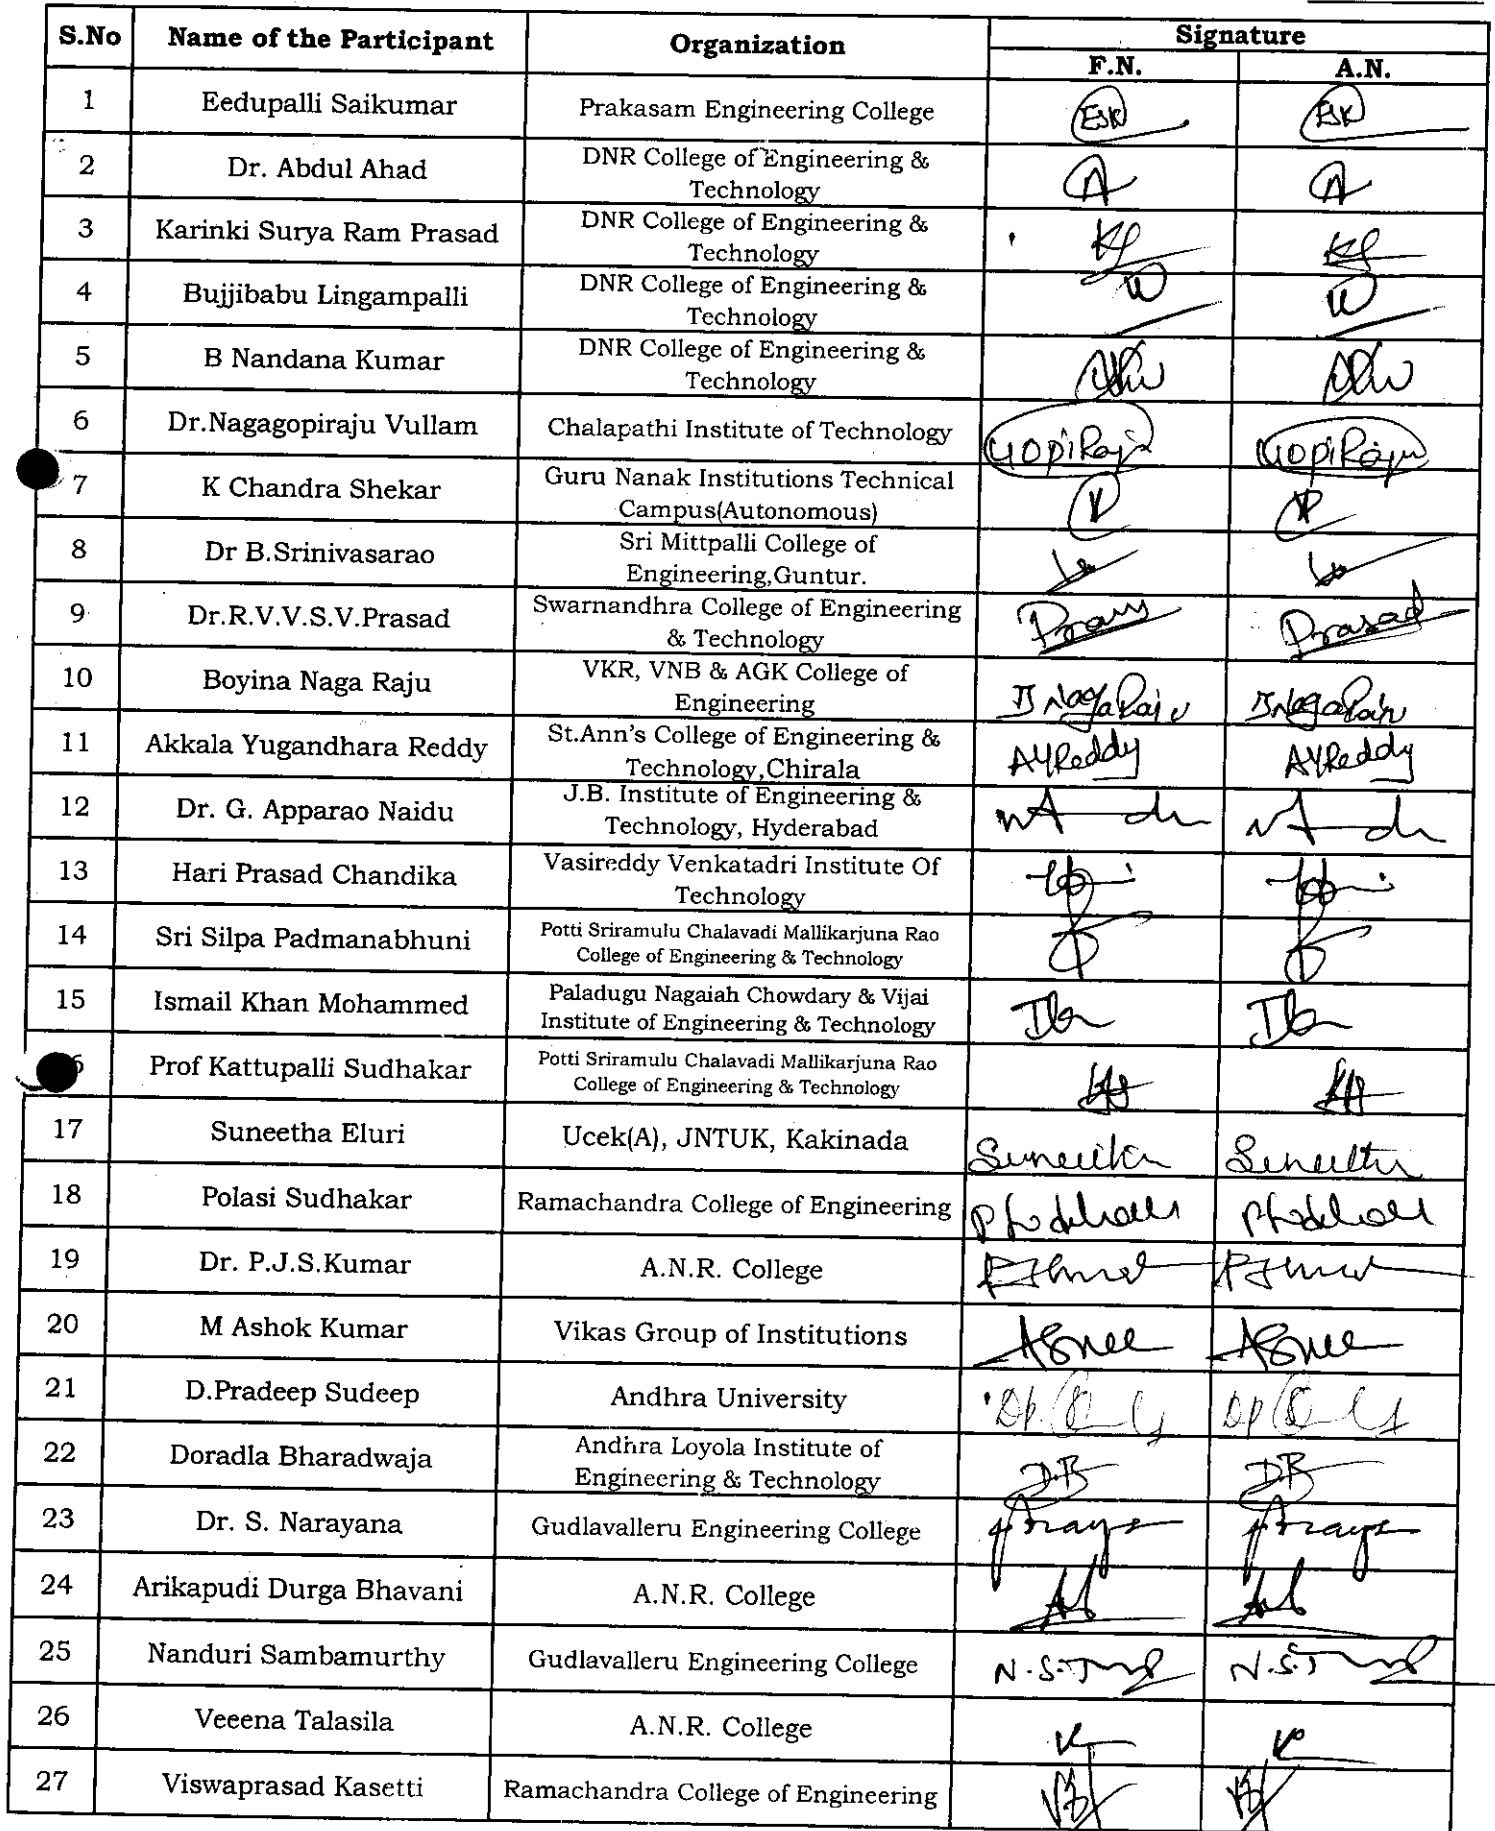 S.No Name of the Participant Organization Signature
F.N. A.N.
1 Eedupalli Saikumar Prakasam Engineering College ESK ESK
2 Dr. Abdul Ahad DNR College of Engineering &
Technology
3 Karinki Surya Ram Prasad DNR College of Engineering &
Technology
4 Bujjibabu Lingampalli DNR College of Engineering &
Technology
5 B Nandana Kumar DNR College of Engineering &
Technology
6 Dr.Nagagopiraju Vullam Chalapathi Institute of Technology GopiRaju GopiRaju
7 K Chandra Shekar Guru Nanak Institutions Technical
Campus(Autonomous)
8 Dr B.Srinivasarao Sri Mittpalli College of
Engineering,Guntur.
9 Dr.R.V.V.S.V.Prasad Swarnandhra College of Engineering
& Technology Prasad
10 Boyina Naga Raju VKR, VNB & AGK College of
Engineering B NagaRaju B NagaRaju
11 Akkala Yugandhara Reddy St.Ann's College of Engineering &
Technology,Chirala AYReddy AYReddy
12 Dr. G. Apparao Naidu J.B. Institute of Engineering &
Technology, Hyderabad
13 Hari Prasad Chandika Vasireddy Venkatadri Institute Of
Technology
14 Sri Silpa Padmanabhuni Potti Sriramulu Chalavadi Mallikarjuna Rao
College of Engineering & Technology
15 Ismail Khan Mohammed Paladugu Nagaiah Chowdary & Vijai
Institute of Engineering & Technology
Prof Kattupalli Sudhakar Potti Sriramulu Chalavadi Mallikarjuna Rao
College of Engineering & Technology
17 Suneetha Eluri Ucek(A), JNTUK, Kakinada Suneetha Suneetha
18 Polasi Sudhakar Ramachandra College of Engineering
19 Dr. P.J.S.Kumar A.N.R. College
20 M Ashok Kumar Vikas Group of Institutions
21 D.Pradeep Sudeep Andhra University
22 Doradla Bharadwaja Andhra Loyola Institute of
Engineering & Technology D.B DB
23 Dr. S. Narayana Gudlavalleru Engineering College
24 Arikapudi Durga Bhavani A.N.R. College
25 Nanduri Sambamurthy Gudlavalleru Engineering College
26 Veeena Talasila A.N.R. College
27 Viswaprasad Kasetti Ramachandra College of Engineering